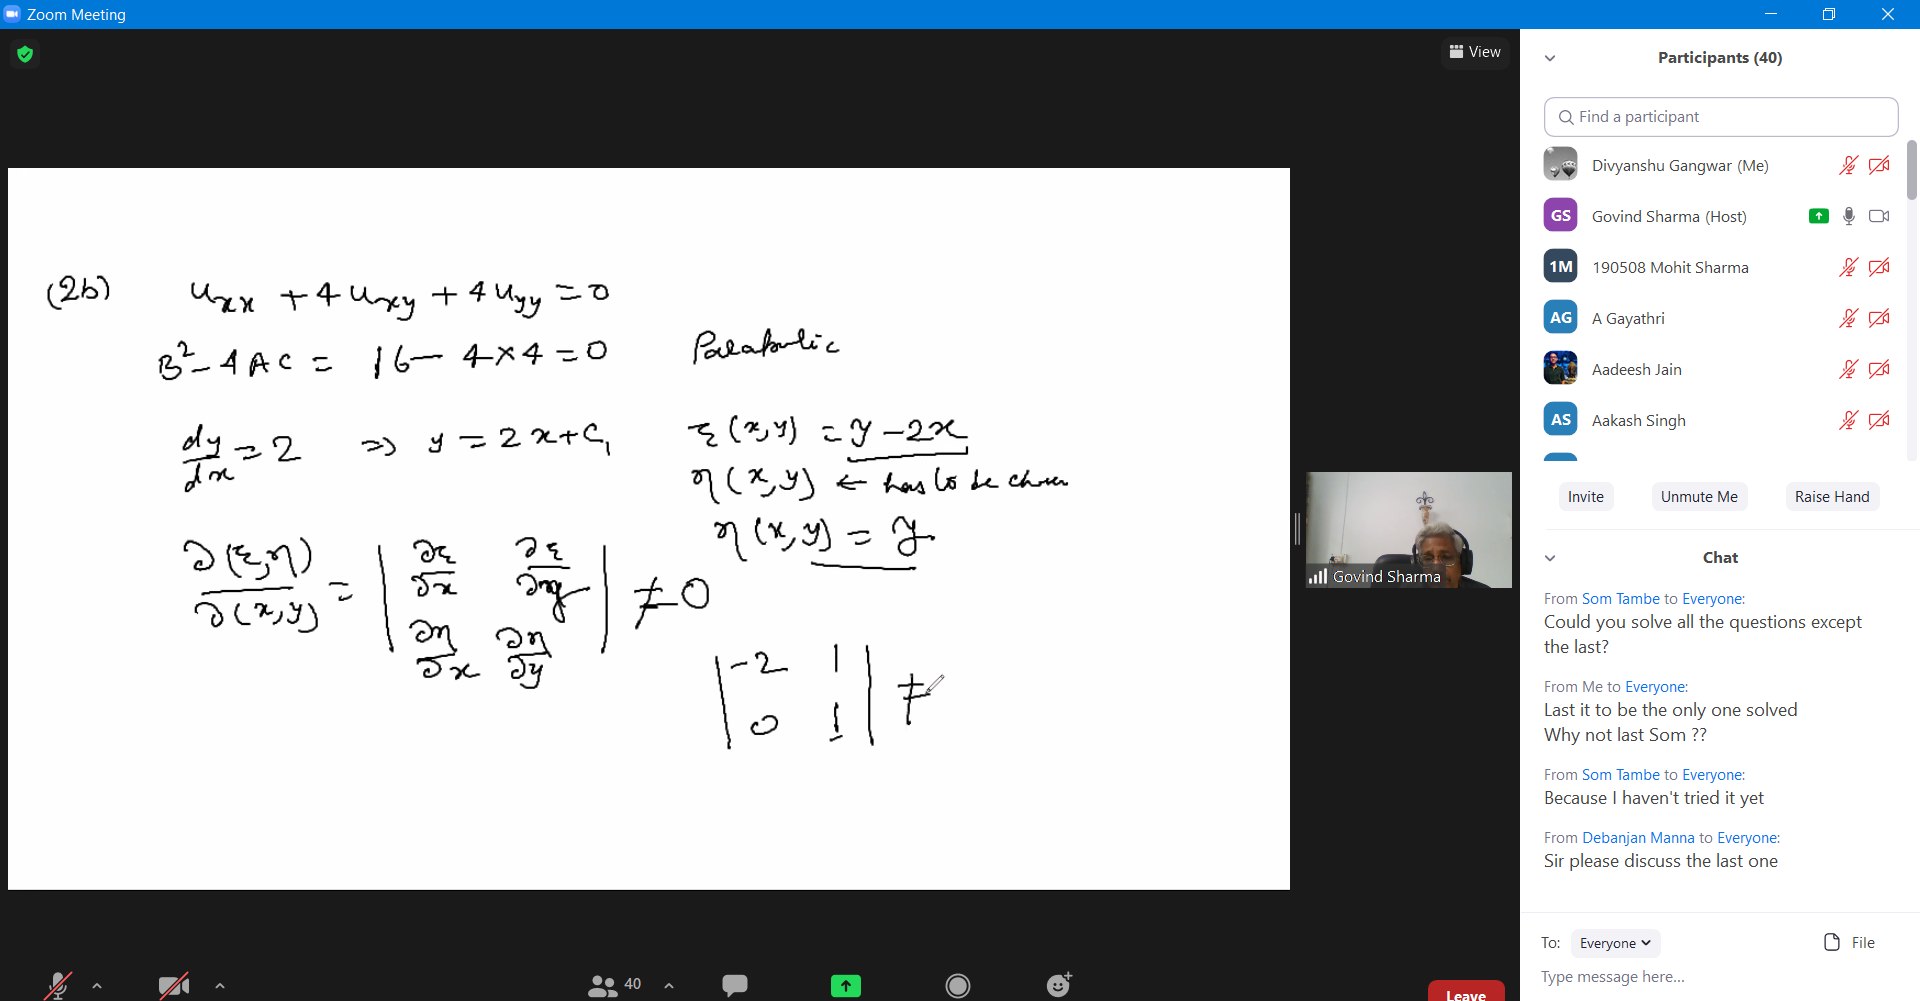 Zoom Meeting
View
(2b) u_xx + 4 u_xy + 4 u_yy = 0
B² - 4AC = 16 - 4×4 = 0 Parabolic
dy/dx = 2 ⇒ y = 2x + C₁ ξ(x,y) = y - 2x
η(x,y) ← has to be chosen
η(x,y) = y.
∂(ξ,η)/∂(x,y) = | ∂ξ/∂x ∂ξ/∂y |
| ∂η/∂x ∂η/∂y | ≠ 0
| -2 1 |
| 0 1 | ≠
Govind Sharma
40
Leave
Participants (40)
Find a participant
Divyanshu Gangwar (Me)
GS Govind Sharma (Host)
1M 190508 Mohit Sharma
AG A Gayathri
Aadeesh Jain
AS Aakash Singh
Invite Unmute Me Raise Hand
Chat
From Som Tambe to Everyone:
Could you solve all the questions except
the last?
From Me to Everyone:
Last it to be the only one solved
Why not last Som ??
From Som Tambe to Everyone:
Because I haven't tried it yet
From Debanjan Manna to Everyone:
Sir please discuss the last one
To: Everyone File
Type message here...